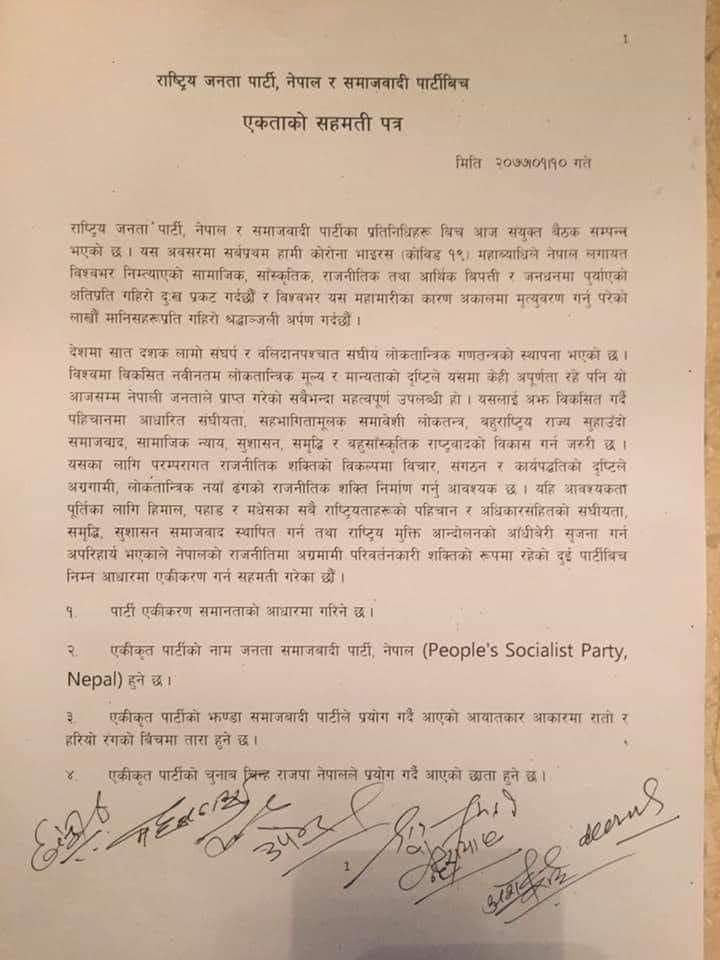 1
राष्ट्रिय जनता पार्टी, नेपाल र समाजवादी पार्टीबिच
एकताको सहमती पत्र
मिति २०७७।०१।१० गते
राष्ट्रिय जनता पार्टी, नेपाल र समाजवादी पार्टीका प्रतिनिधिहरू बिच आज संयुक्त बैठक सम्पन्न
भएको छ । यस अवसरमा सर्वप्रथम हामी कोरोना भाइरस (कोविड १९) महाव्याधिले नेपाल लगायत
विश्वभर निम्त्याएको सामाजिक, साँस्कृतिक, राजनीतिक तथा आर्थिक विपत्ती र जनधनमा पुर्याएको
क्षतिप्रति गहिरो दुःख प्रकट गर्दछौं र विश्वभर यस महामारीका कारण अकालमा मृत्युवरण गर्नु परेको
लाखौं मानिसहरूप्रति गहिरो श्रद्धाञ्जली अर्पण गर्दछौं ।
देशमा सात दशक लामो संघर्ष र वलिदानपश्चात संघीय लोकतान्त्रिक गणतन्त्रको स्थापना भएको छ ।
विश्वमा विकसित नवीनतम लोकतान्त्रिक मूल्य र मान्यताको दृष्टिले यसमा केही अपूर्णता रहे पनि यो
आजसम्म नेपाली जनताले प्राप्त गरेको सबैभन्दा महत्वपूर्ण उपलब्धी हो । यसलाई अझ विकसित गर्दै
पहिचानमा आधारित संघीयता, सहभागितामूलक समावेशी लोकतन्त्र, बहुराष्ट्रिय राज्य सुहाउँदो
समाजवाद, सामाजिक न्याय, सुशासन, समृद्धि र बहुसाँस्कृतिक राष्ट्रवादको विकास गर्न जरुरी छ ।
यसका लागि परम्परागत राजनीतिक शक्तिको विकल्पमा विचार, संगठन र कार्यपद्धतिको दृष्टिले
अग्रगामी, लोकतान्त्रिक नयाँ ढंगको राजनीतिक शक्ति निर्माण गर्नु आवश्यक छ । यहि आवश्यकता
पूर्तिका लागि हिमाल, पहाड र मधेसका सबै राष्ट्रियताहरूको पहिचान र अधिकारसहितको संघीयता,
समृद्धि, सुशासन समाजवाद स्थापित गर्न तथा राष्ट्रिय मुक्ति आन्दोलनको आँधीबेरी सृजना गर्न
अपरिहार्य भएकाले नेपालको राजनीतिमा अग्रमामी परिवर्तनकारी शक्तिको रूपमा रहेको दुई पार्टीबिच
निम्न आधारमा एकीकरण गर्न सहमती गरेका छौं ।
१. पार्टी एकीकरण समानताको आधारमा गरिने छ ।
२. एकीकृत पार्टीको नाम जनता समाजबादी पार्टी, नेपाल (People's Socialist Party,
Nepal) हुने छ ।
३ एकीकृत पार्टीको झण्डा समाजबादी पार्टीले प्रयोग गर्दै आएको आयातकार आकारमा रातो र
हरियो रंगको बिचमा तारा हुने छ ।
४. एकीकृत पार्टीको चुनाब चिन्ह राजपा नेपालले प्रयोग गर्दै आएको छाता हुने छ ।
1